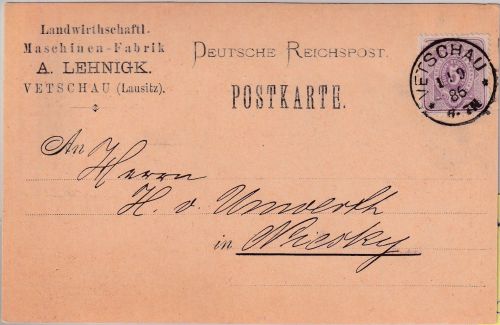 Landwirthschaftl.
Maschinen-Fabrik
A. LEHNIGK.
VETSCHAU (Lausitz).
DEUTSCHE REICHSPOST.
POSTKARTE.
VETSCHAU
86
An
Herrn
H. v. Unwerth
in Niesky